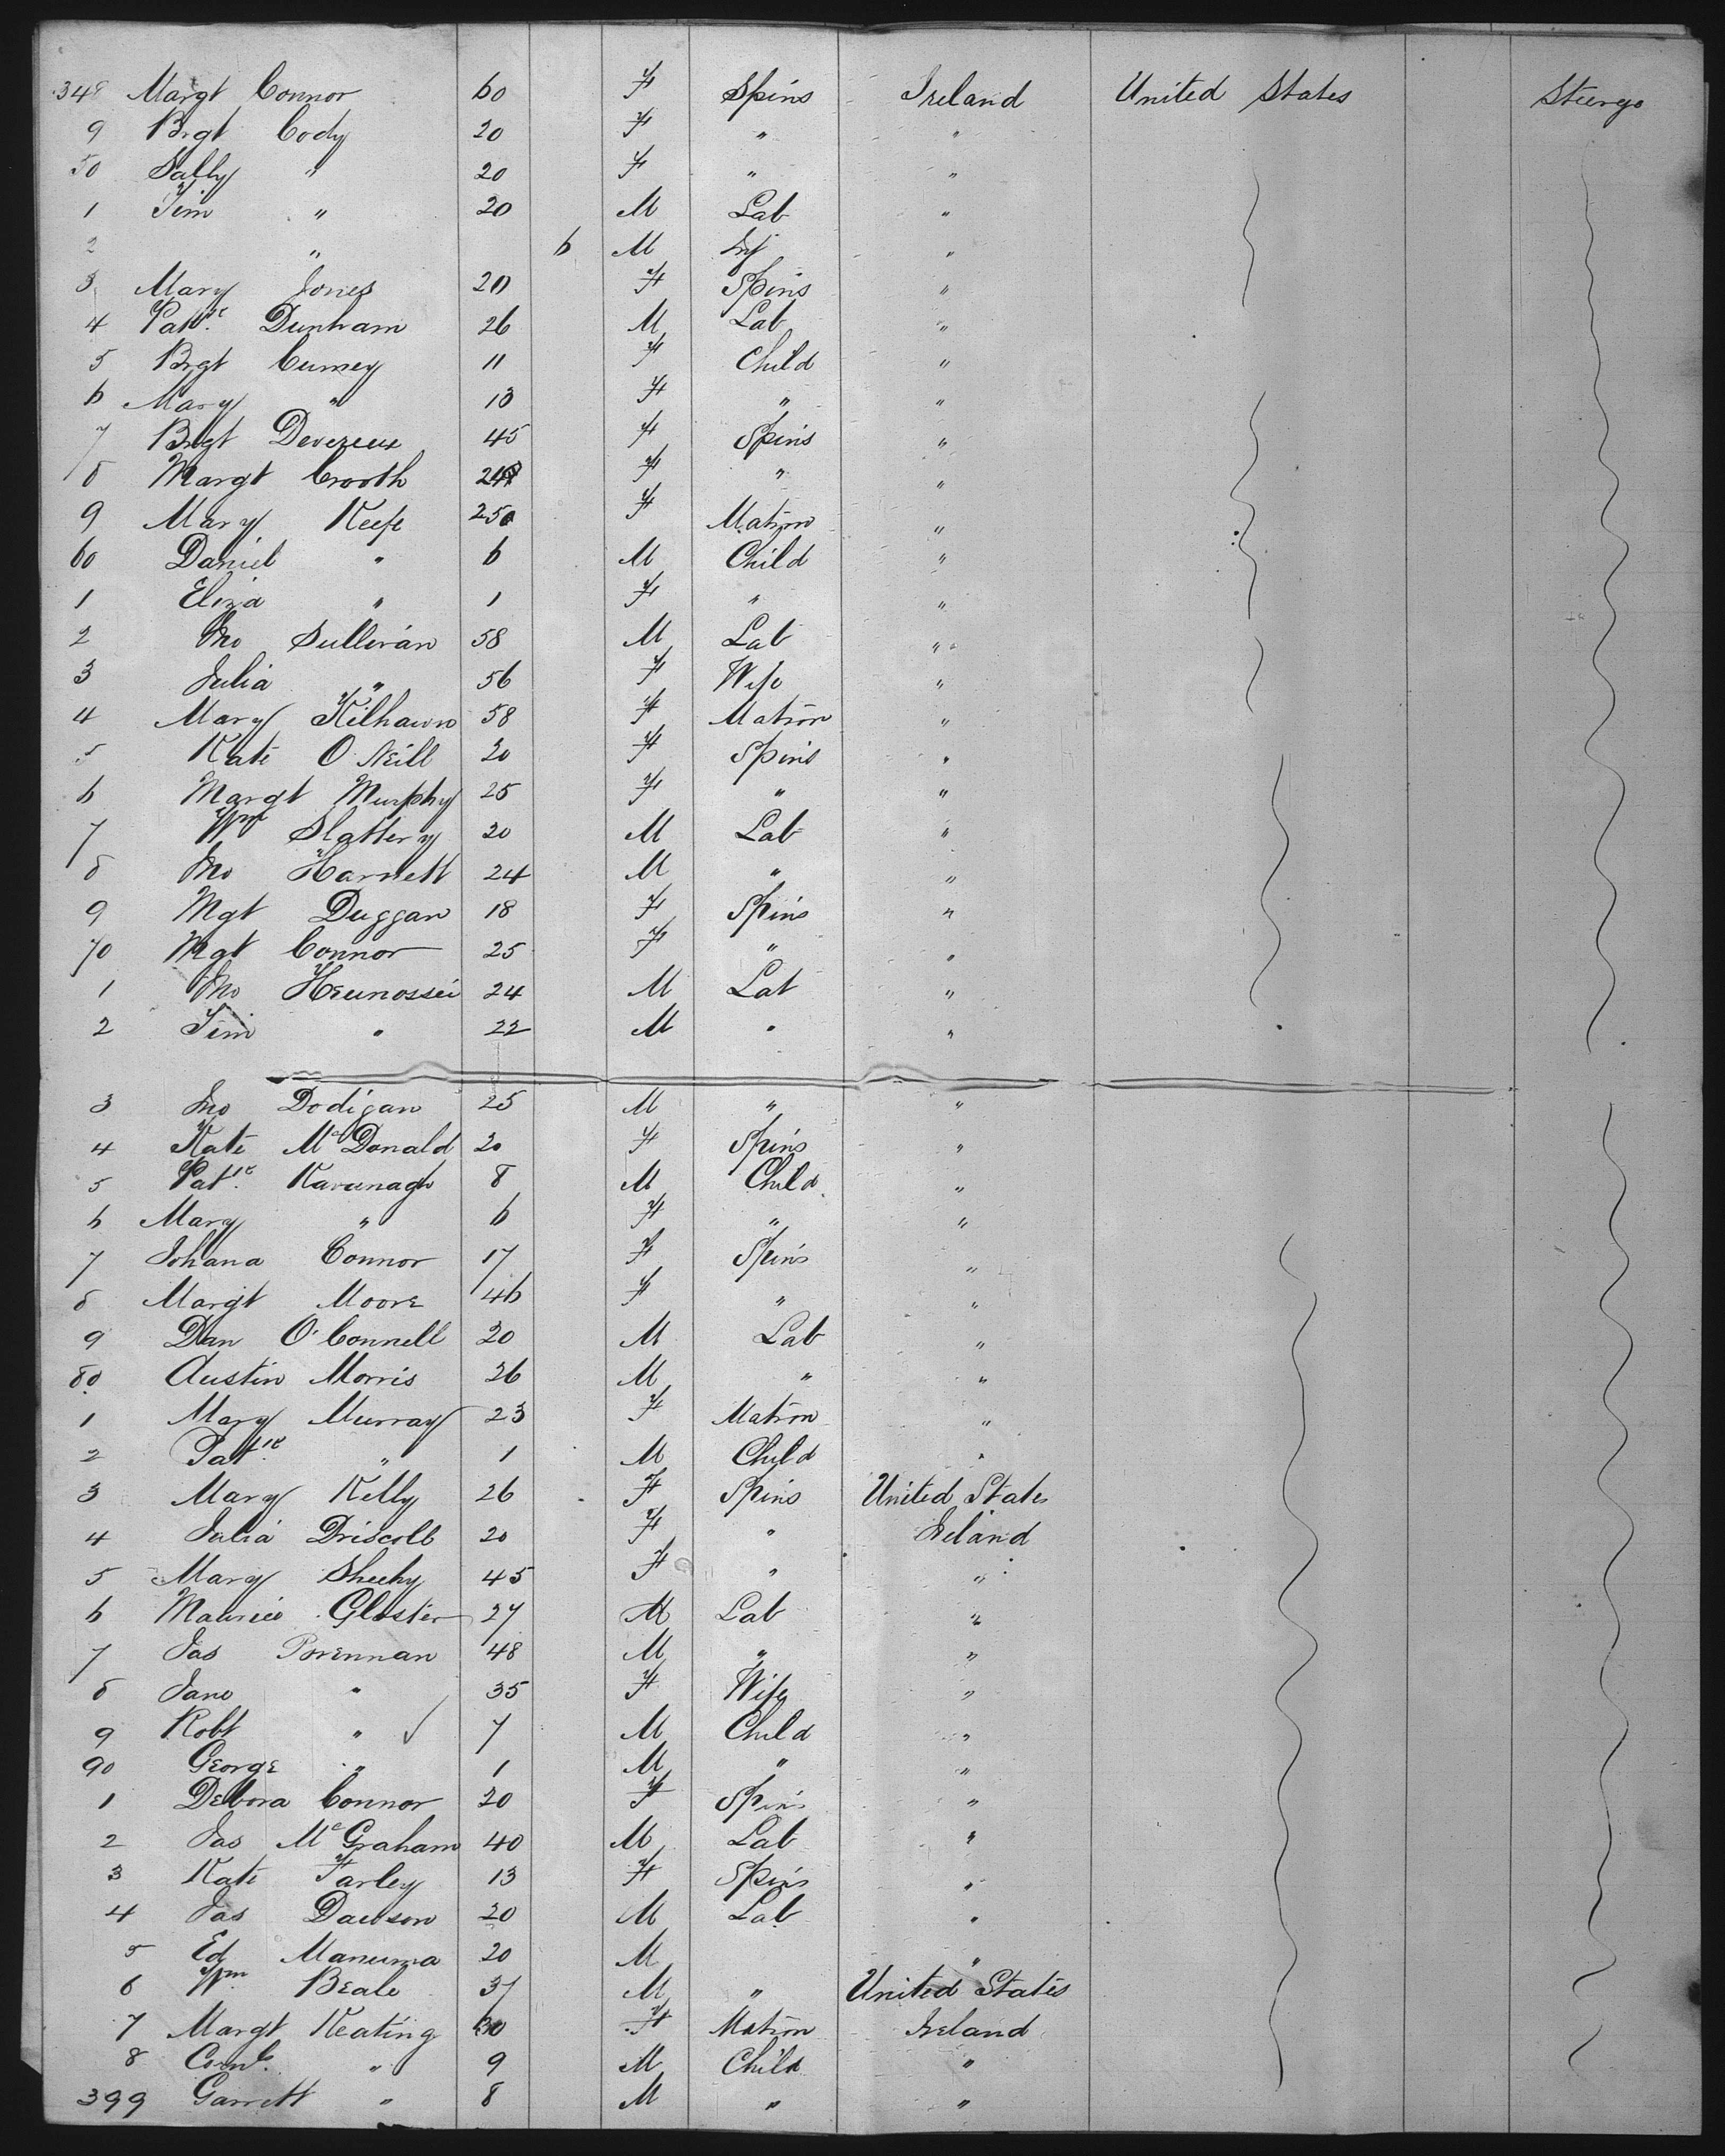 348 Margt Connor 60 F Spins Ireland United States Steerge
9 Brgt Cody 20 F " "
50 Sally " 20 F " "
1 Jim " 20 M Lab "
2 " 6 M Inf "
3 Mary Jones 20 F Spins "
4 Patk Dunham 26 M Lab "
5 Brgt Cumey 11 F Child "
6 Mary " 13 F " "
7 Brgt Devereux 45 F Spins "
8 Margt Crooth F " "
9 Mary Keefe F Matron "
60 Daniel " 6 M Child "
1 Eliza " 1 F " "
2 Jno Sullivan 58 M Lab "
3 Julia " 56 F Wife "
4 Mary Kilhawn 58 F Matron "
5 Kate O Neill 20 F Spins "
6 Margt Murphy 25 F " "
7 Wm Slattery 20 M Lab "
8 Jno Harnett 24 M " "
9 Mgt Duggan 18 F Spins "
70 Mgt Connor 25 F " "
1 Jno Heunossei 24 M Lab "
2 Jim " 22 M " "
3 Jno Dodigan 25 M " "
4 Kate McDonald 20 F Spins "
5 Patk Kavanagh 8 M Child "
6 Mary " 6 F " "
7 Johana Connor 17 F Spins "
8 Margt Moore 46 F " "
9 Dan O'Connell 20 M Lab "
80 Austin Morris 26 M " "
1 Mary Murray 23 F Matron "
2 Patk " 1 M Child "
3 Mary Kelly 26 F Spins United States
4 Julia Driscoll 20 F " Ireland
5 Mary Sheehy 45 F " "
6 Maurice Gloster 27 M Lab "
7 Jas Brennan 48 M " "
8 Jane " 35 F Wife "
9 Robt " 7 M Child "
90 George " 1 M " "
1 Debora Connor 20 F Spins "
2 Jas McGraham 40 M Lab "
3 Kate Farley 13 F Spins "
4 Jas Dawson 20 M Lab "
5 Ed Manuma 20 M "
6 Wm Beale 37 M " United States
7 Margt Keating 30 F Matron Ireland
8 Cornls " 9 M Child "
399 Garrett " 8 M " "